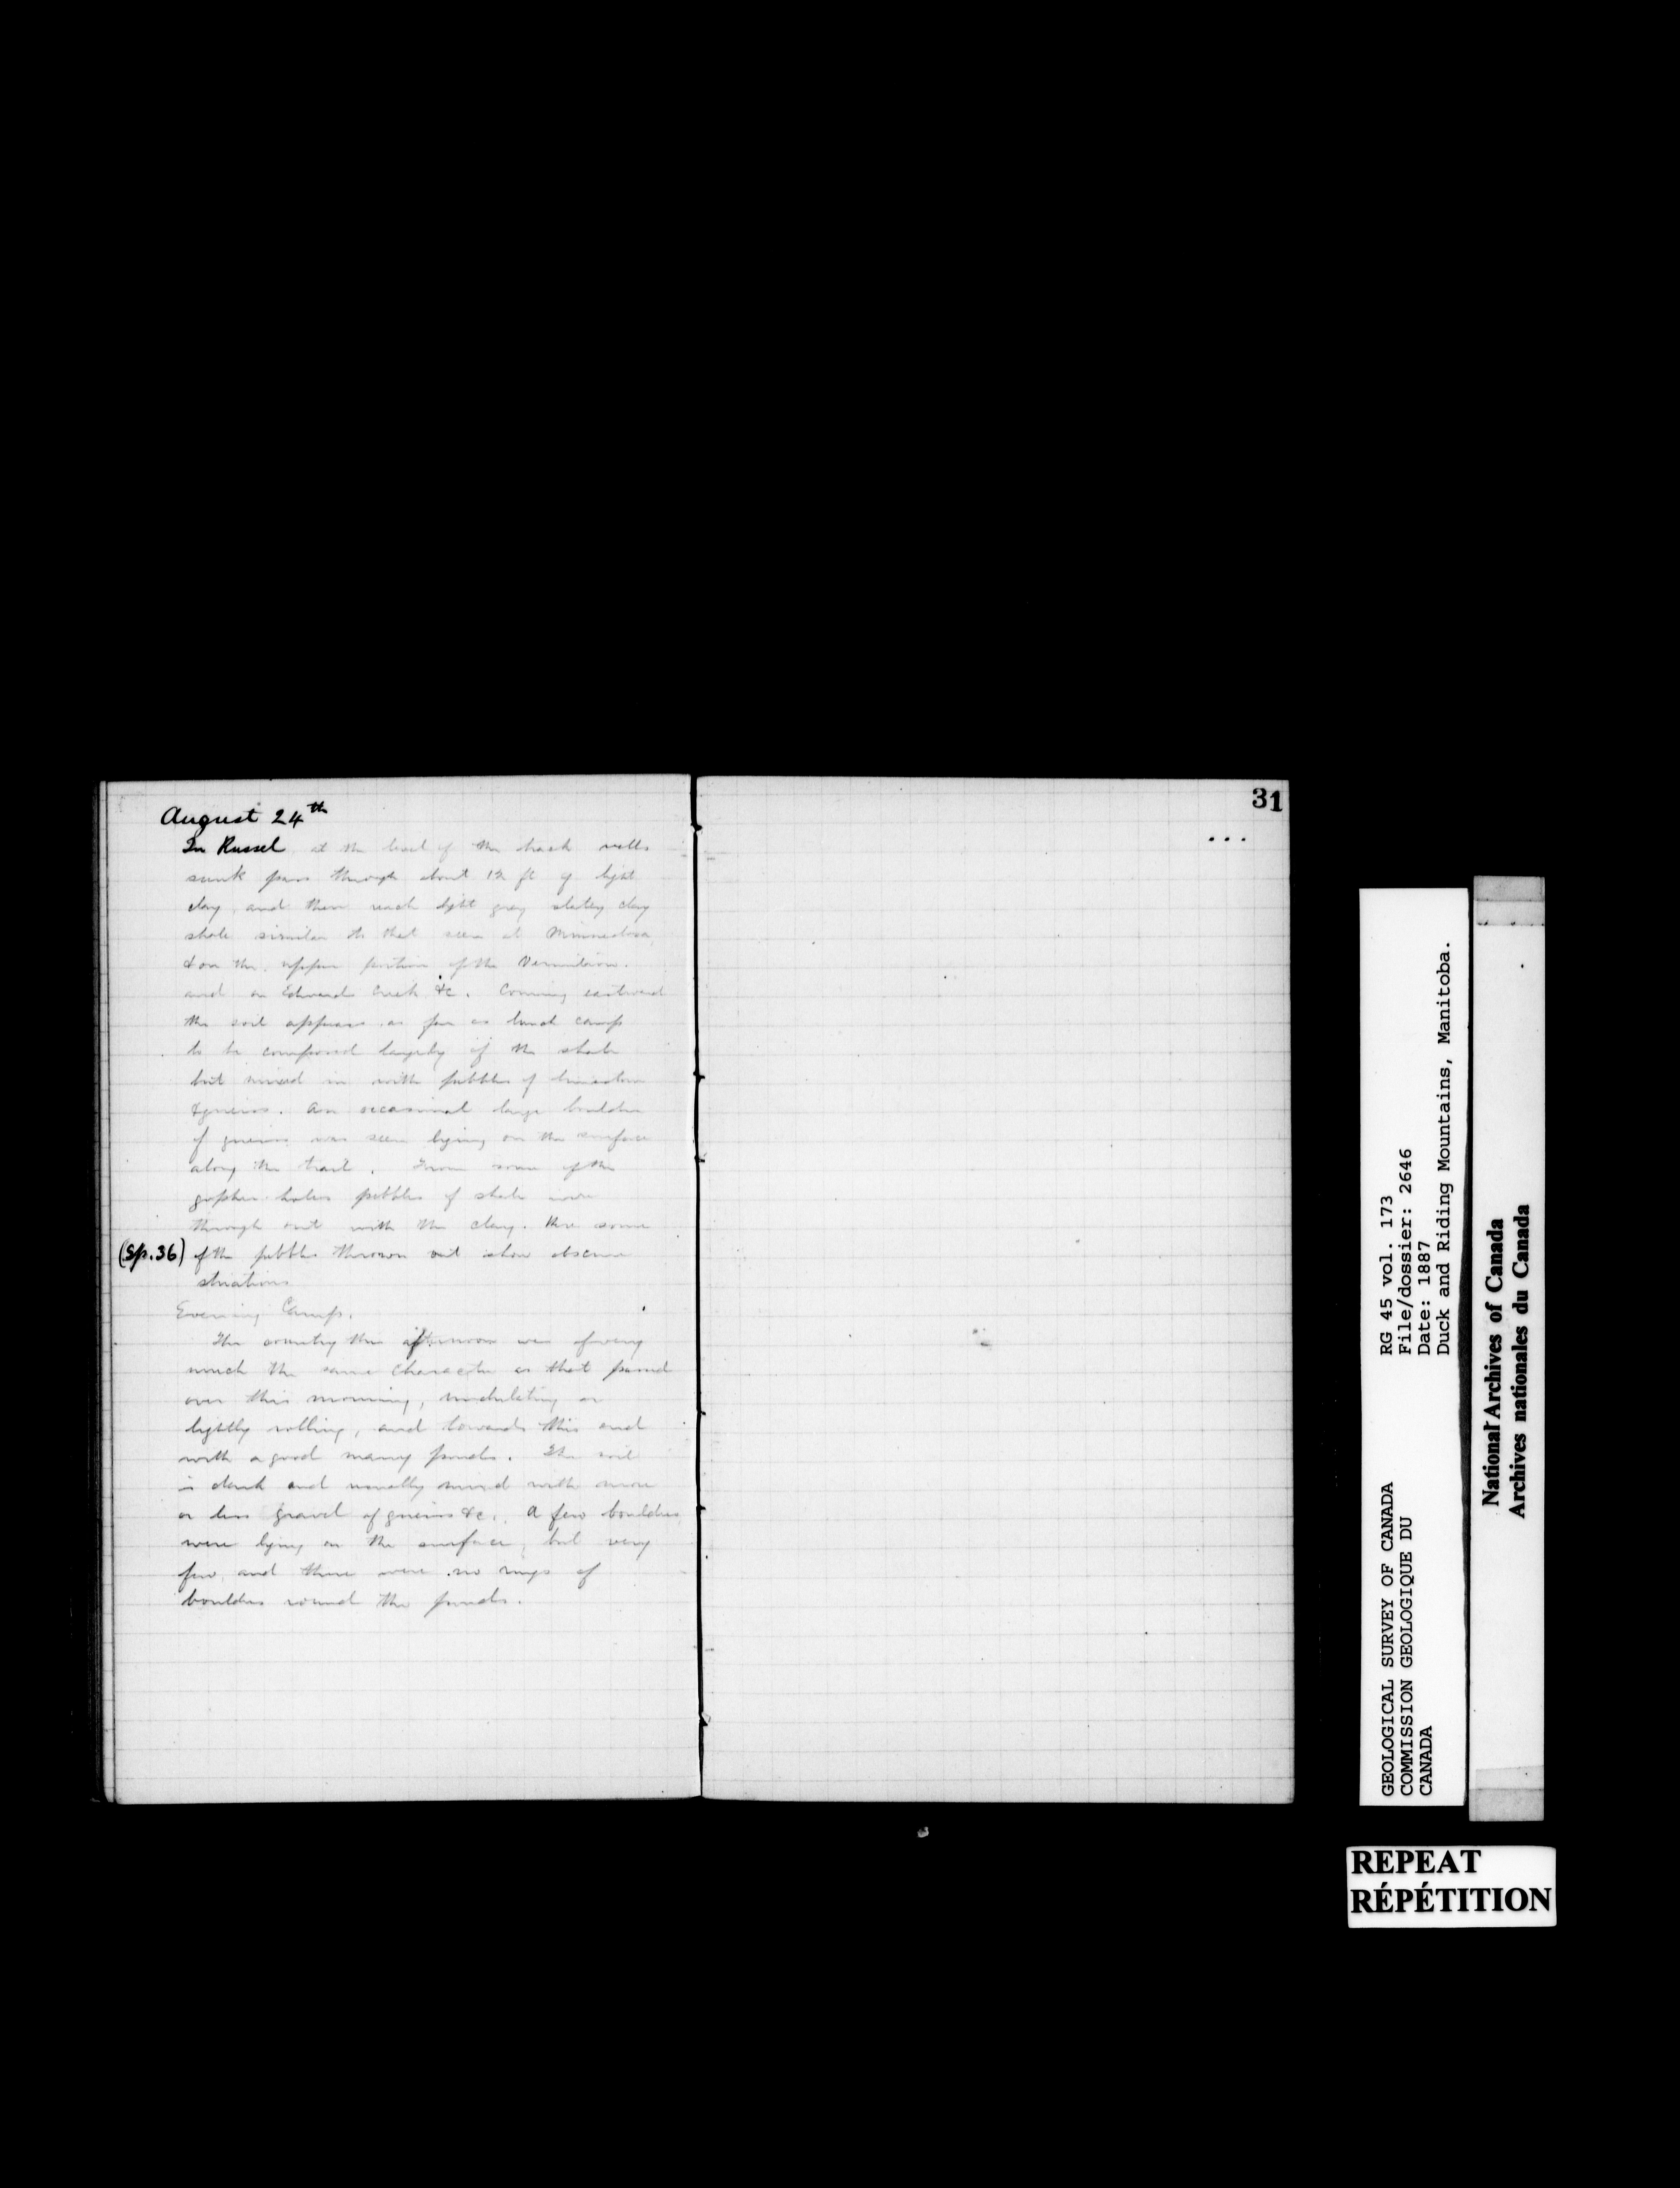 August 24th
In Russel at the level of the track wells
sunk pass through about 12 ft of light
clay, and then reach light grey slatey clay
shale similar to that seen at Minnedosa,
& on the upper portion of the Vermilion.
and on Edwards Creek &c. Coming eastward
the soil appears as far as lunch camp
to be composed largely of the shale
but mixed in with pebbles of limestone
& gneiss. An occasional large boulder
of gneiss was seen lying on the surface
along the trail. From some of the
gopher holes pebbles of shale were
through out with the clay. some
(Sp.36) of the pebbles thrown out show obscure
striations
Evening Camp.
The country this afternoon was of very
much the same character as that passed
over this morning, undulating or
lightly rolling, and towards this end
with a good many ponds. The soil
is dark and usually mixed with more
or less gravel of gneiss &c. A few boulders
were lying on the surface, but very
few, and there were no rings of
boulders round the ponds.
31
...
GEOLOGICAL SURVEY OF CANADA
COMMISSION GEOLOGIQUE DU
CANADA
RG 45 vol. 173
File/dossier: 2646
Date: 1887
Duck and Riding Mountains, Manitoba.
National Archives of Canada
Archives nationales du Canada
REPEAT
RÉPÉTITION